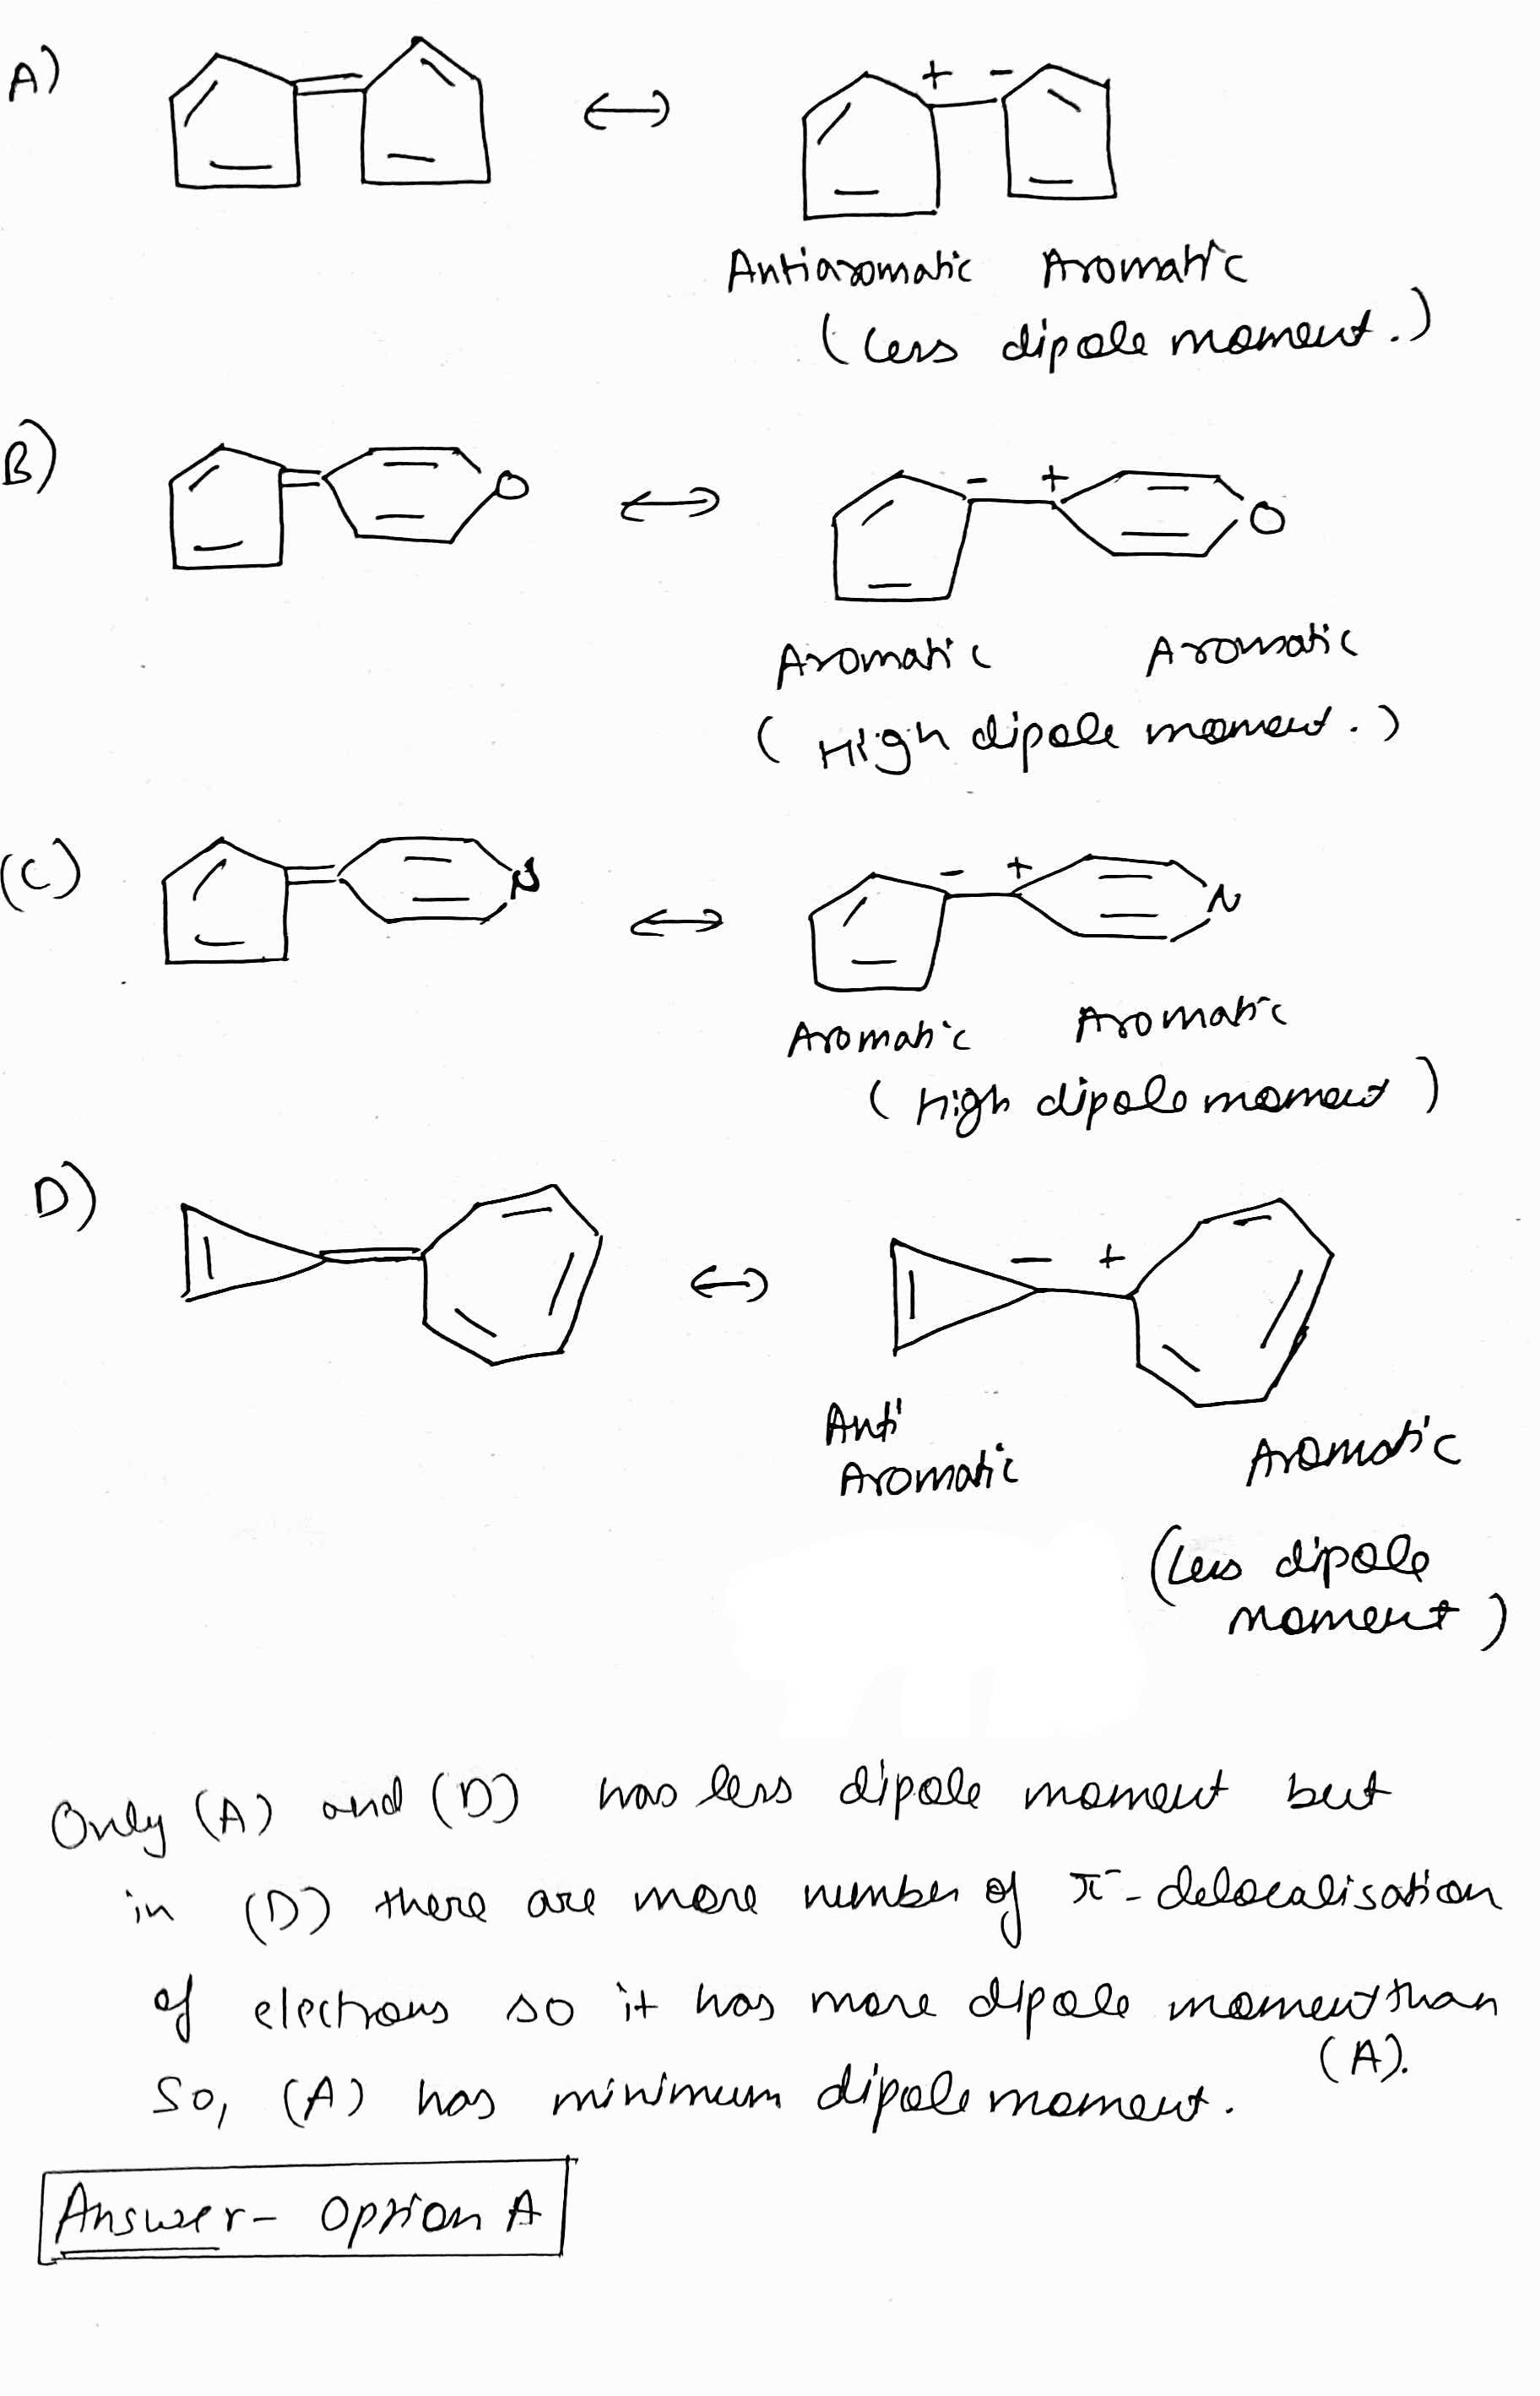 A)
+ -
Antiaromatic Aromatic
(Less dipole moment.)
B)
O
- +
O
Aromatic Aromatic
( High dipole moment.)
(C)
N
- +
N
Aromatic Aromatic
( High dipole moment )
D)
- +
Anti
Aromatic
Aromatic
(Less dipole
moment)
Only (A) and (D) has less dipole moment but
in (D) there are more number of π-delocalisation
of electrons so it has more dipole moment than
(A).
So, (A) has minimum dipole moment.
Answer- Option A